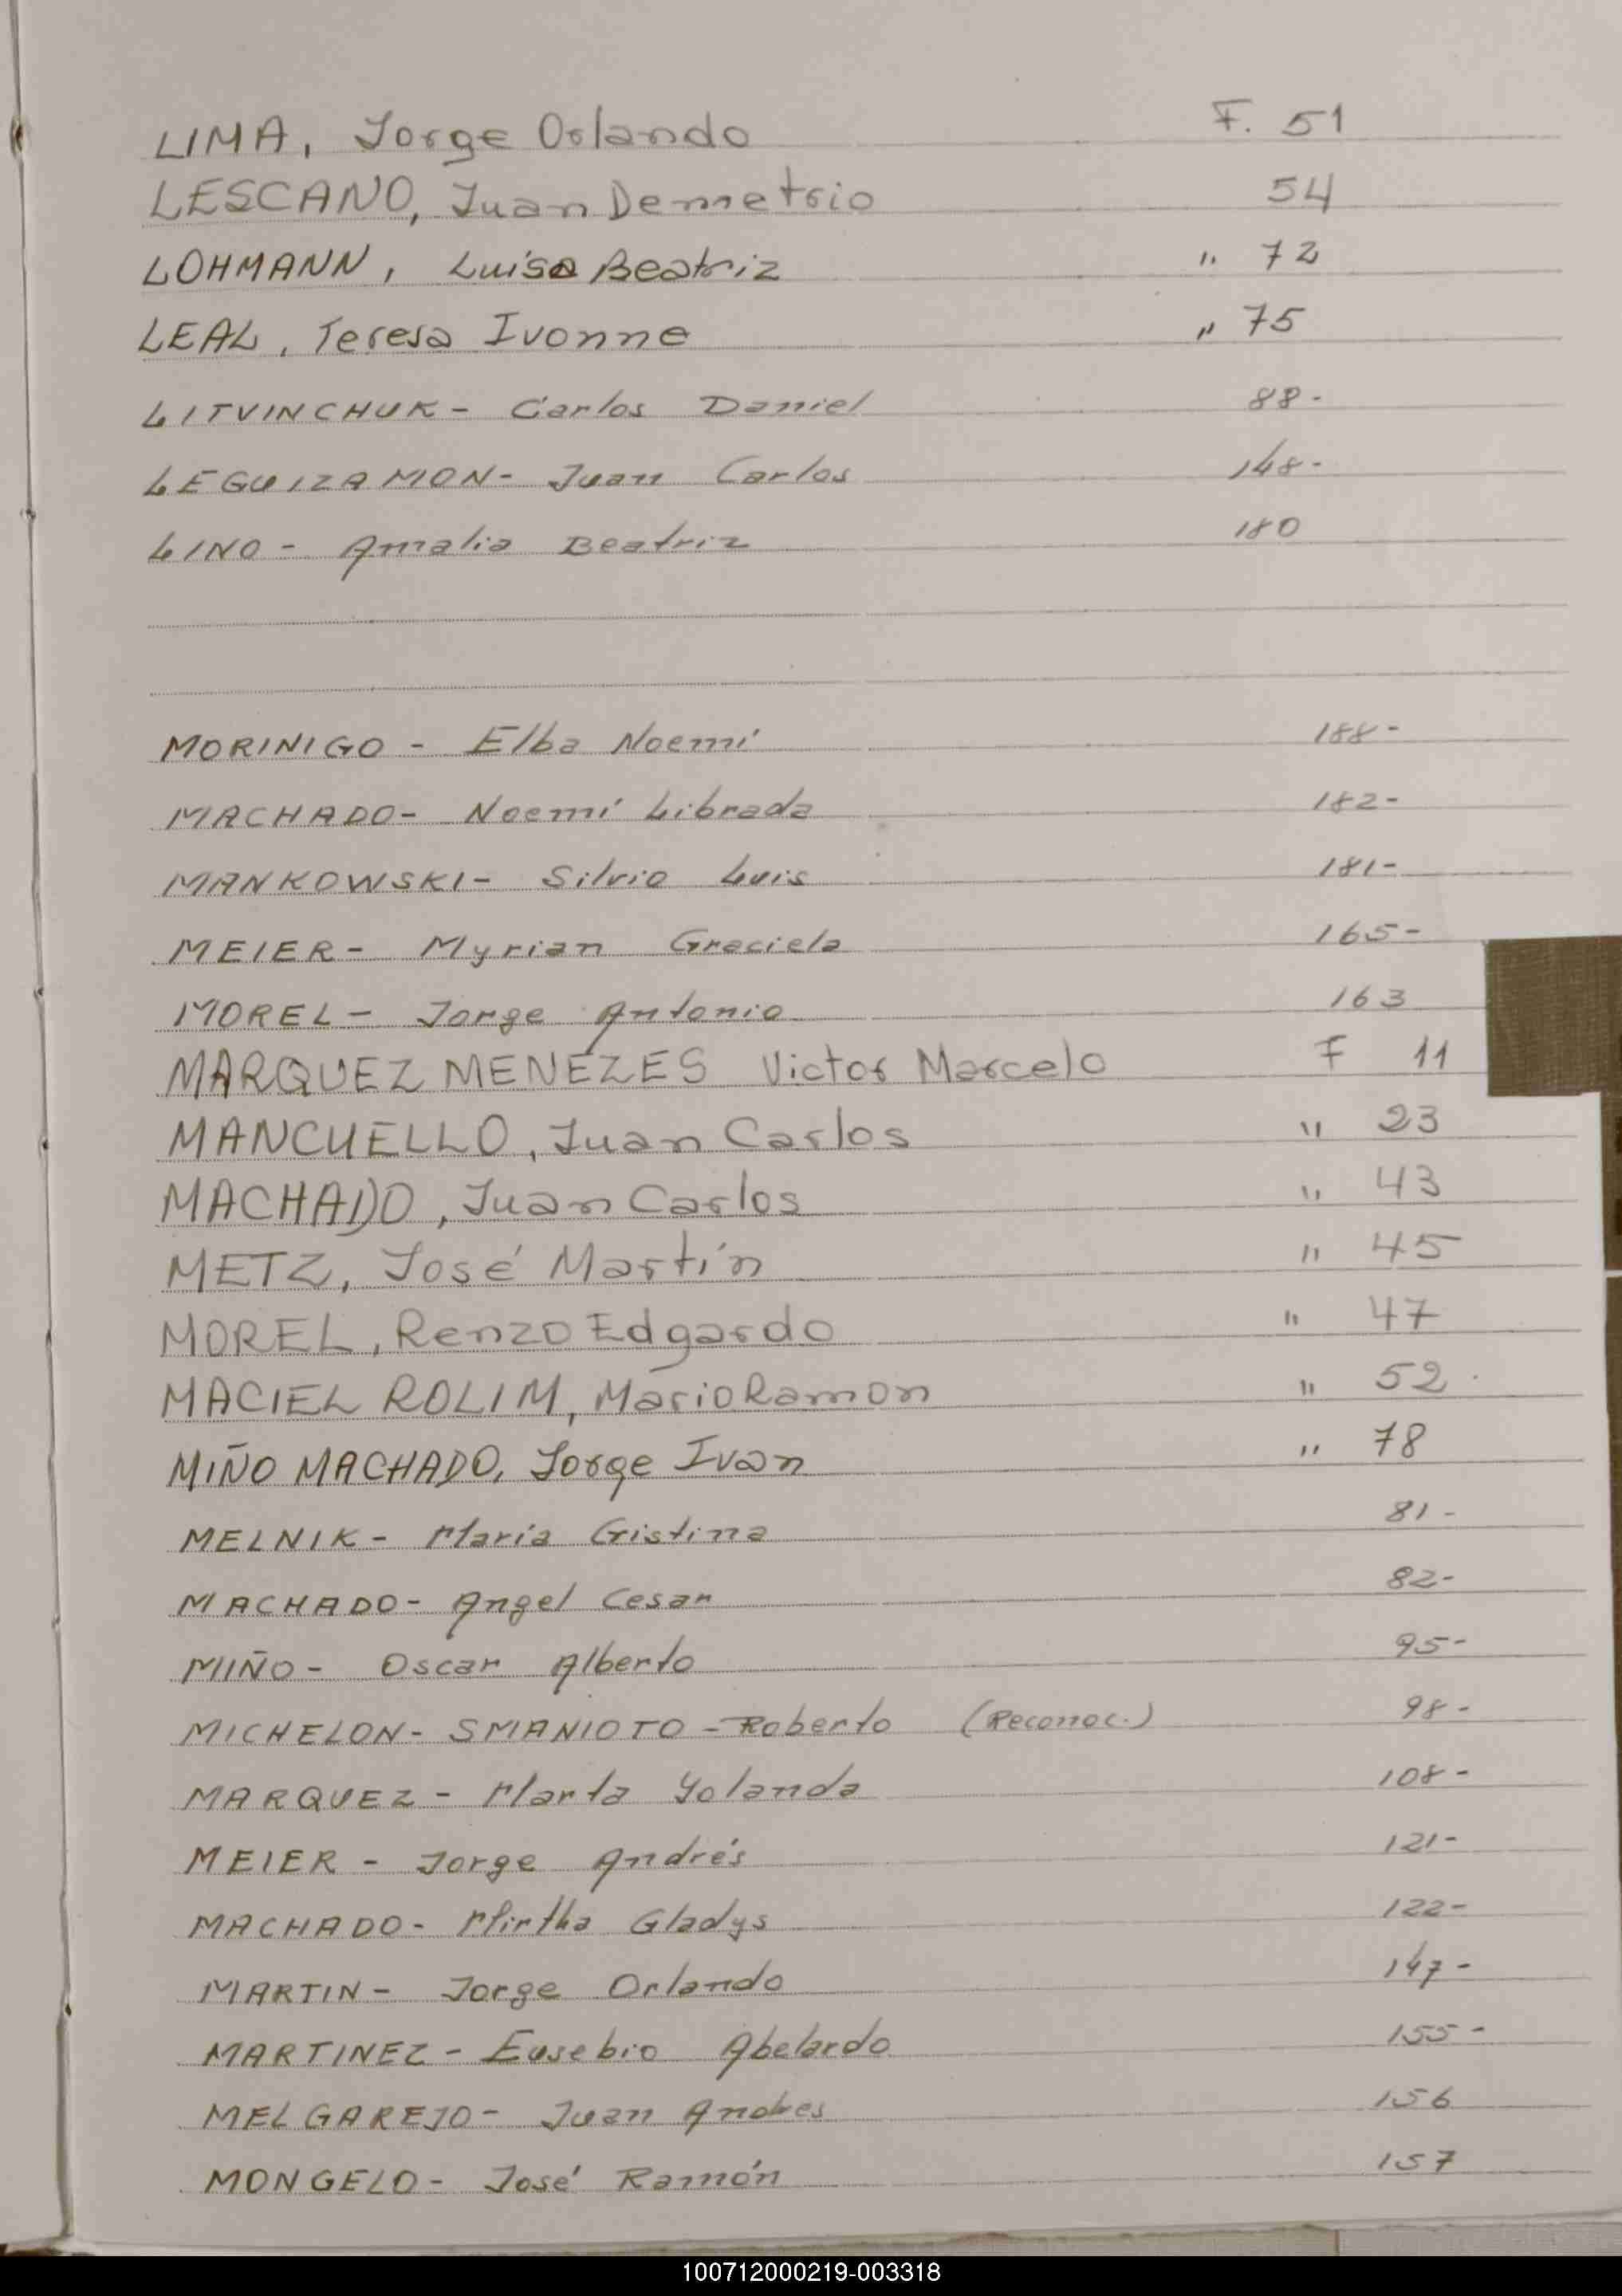 LIMA, Jorge Orlando F. 51
LESCANO, Juan Demetrio 54
LOHMANN, Luisa Beatriz " 72
LEAL, Teresa Ivonne " 75
LITVINCHUK - Carlos Daniel 88-
LEGUIZAMON - Juan Carlos 148-
LINO - Amalia Beatriz 180
MORINIGO - Elba Noemí 188-
MACHADO - Noemí Librada 182-
MANKOWSKI - Silvio Luis 181-
MEIER - Myrian Graciela 165-
MOREL - Jorge Antonio 163
MARQUEZ MENEZES Victor Marcelo F 11
MANCUELLO, Juan Carlos " 23
MACHADO, Juan Carlos " 43
METZ, José Martín " 45
MOREL, Renzo Edgardo " 47
MACIEL ROLIM, Mario Ramon " 52
MIÑO MACHADO, Jorge Ivan " 78
MELNIK - María Cristina 81-
MACHADO - Angel Cesar 82-
MIÑO - Oscar Alberto 95-
MICHELON - SMANIOTO - Roberto (Reconoc.) 98-
MARQUEZ - Marta Yolanda 108-
MEIER - Jorge Andrés 121-
MACHADO - Mirtha Gladys 122-
MARTIN - Jorge Orlando 147-
MARTINEZ - Eusebio Abelardo 155-
MELGAREJO - Juan Andres 156
MONGELO - José Ramón 157
100712000219-003318